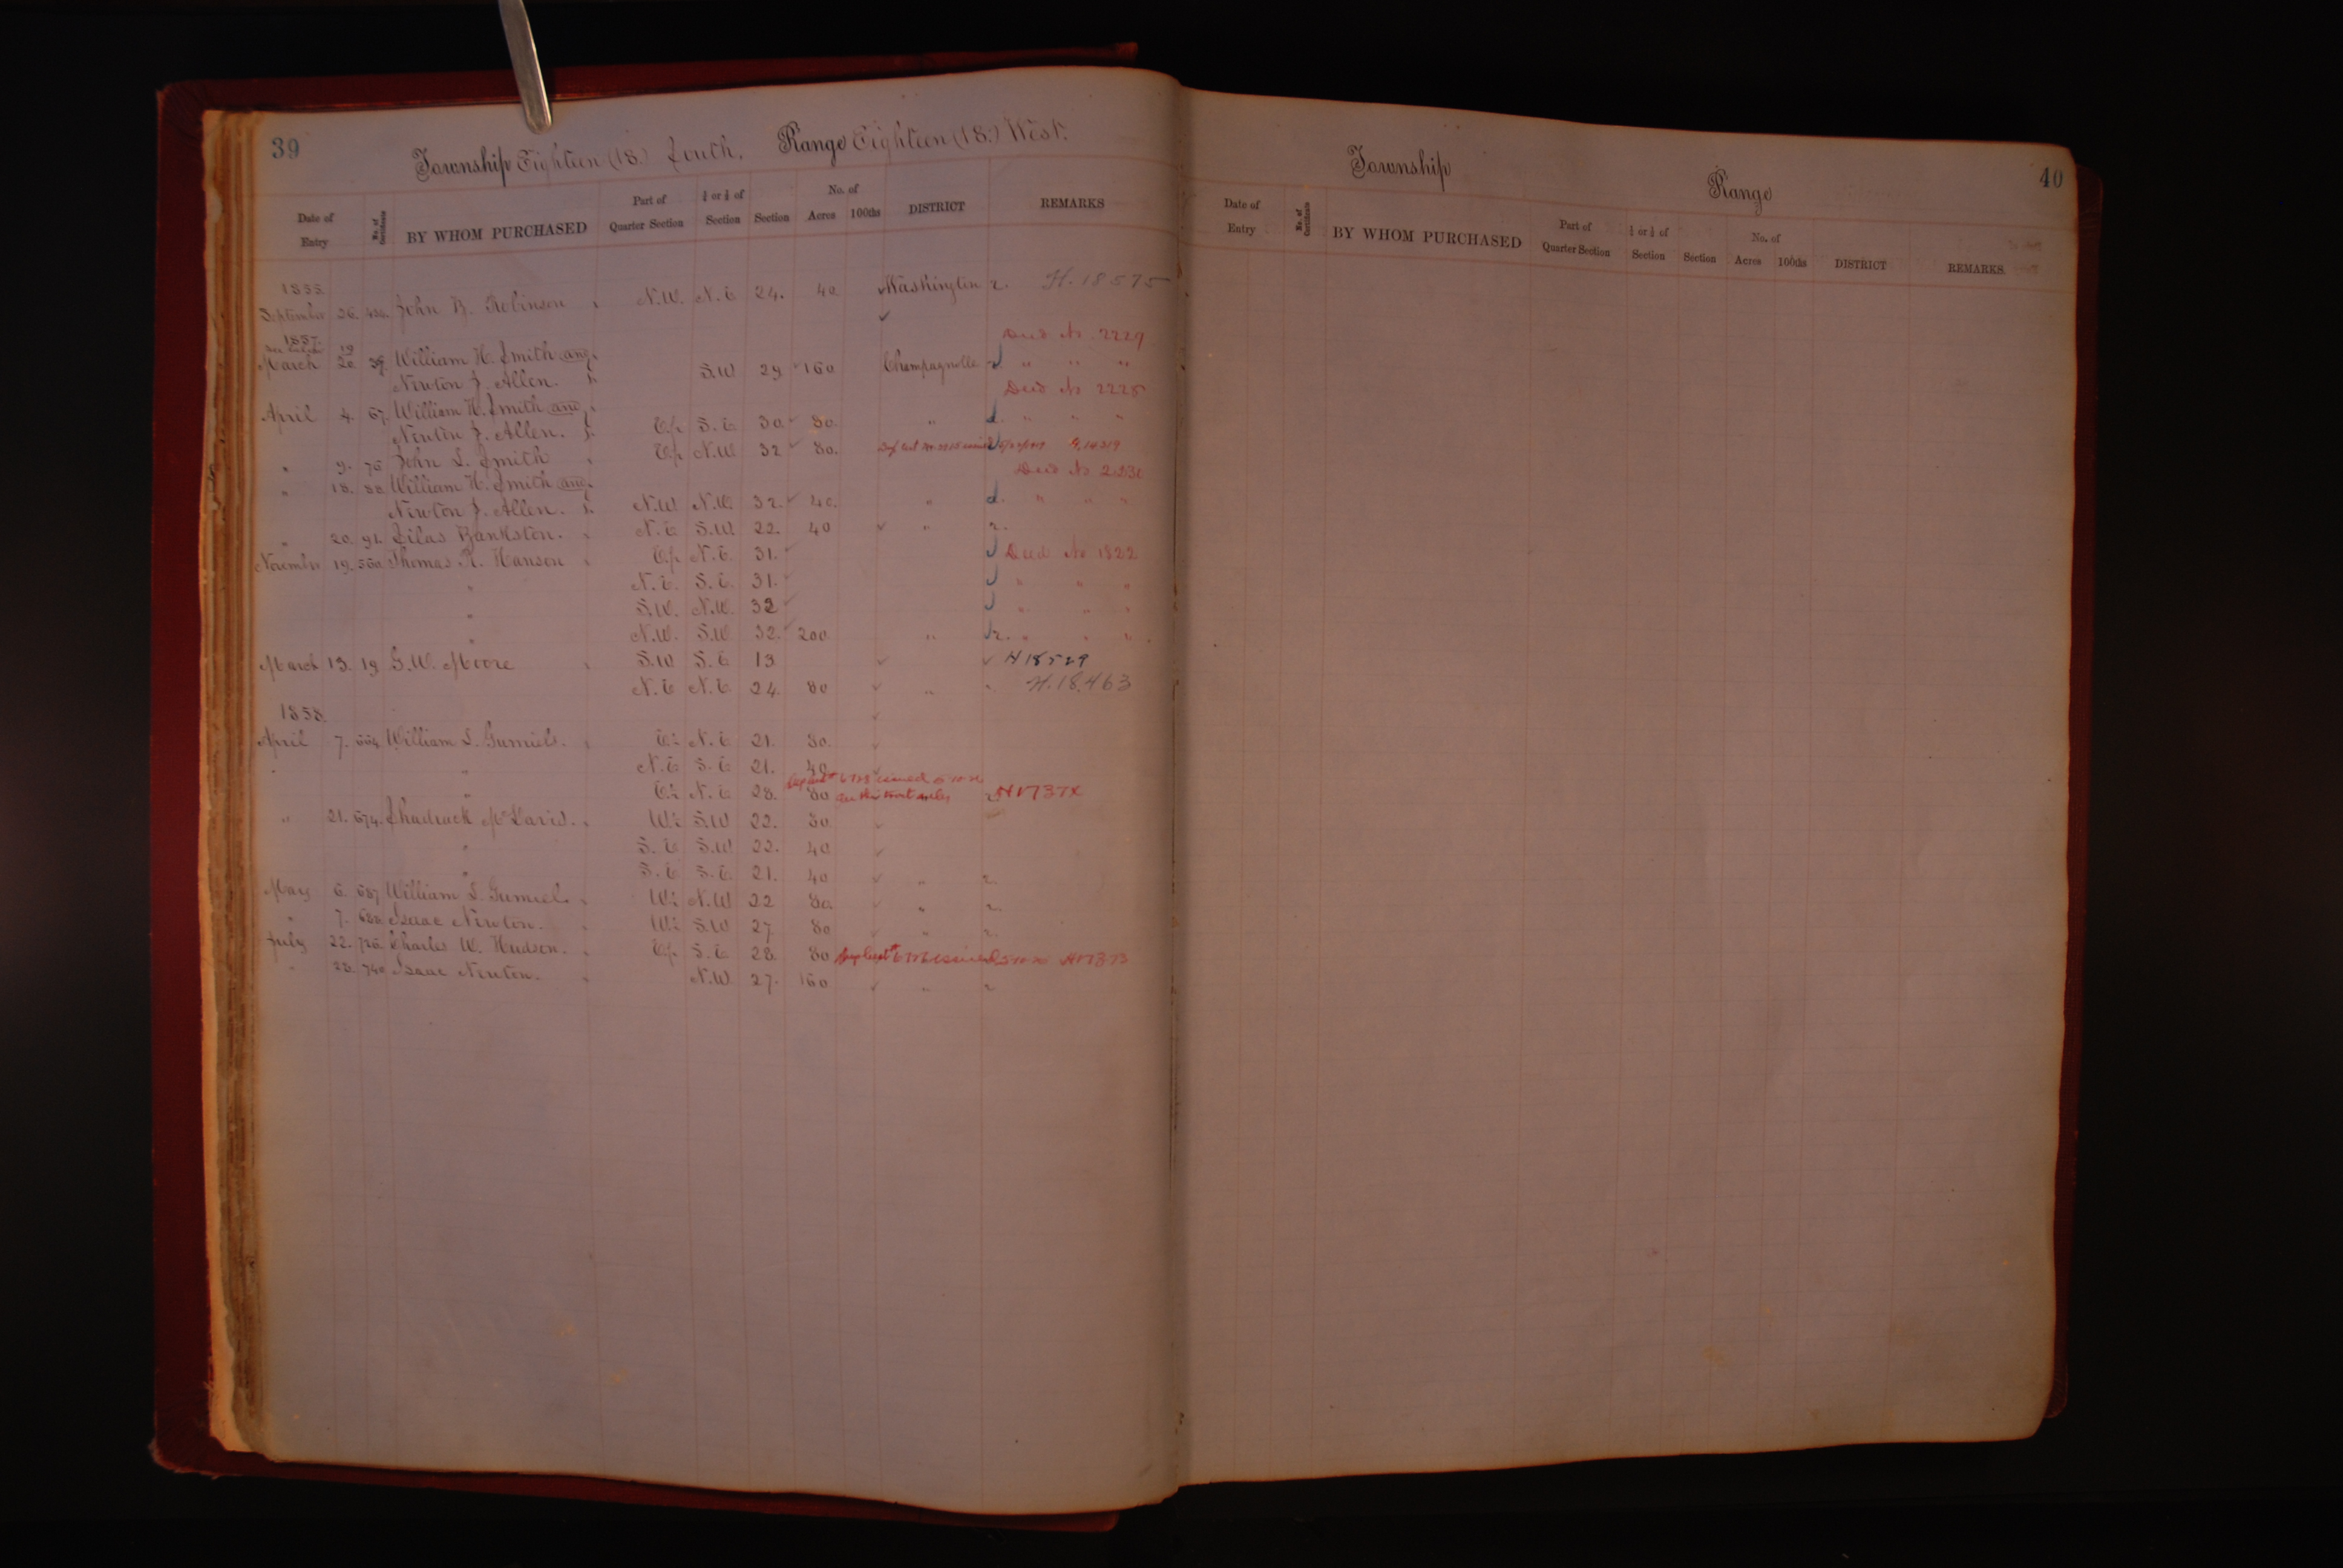 39
Township Eighteen (18.) South. Range Eighteen (18.) West.
Date of Entry No. of Certificate BY WHOM PURCHASED Part of Quarter Section ½ or ¼ of Section Section No. of Acres 100ths DISTRICT REMARKS
1855.
September 26. John B. Robinson N.W. N.E 24. 40. Washington r. H. 18575
1857. Deed No 2229
19
March 20 39. William H. Smith and
Newton J. Allen. S.W 29 160 Champagnolle " " "
Deed No 2225
April 4. 57. William H. Smith and
Newton J. Allen. E½ S.E 30 80. " d. " " "
" 9. 75 John S. Smith E½ N.W. 32 80. G, 14319
" 18. 88 William H. Smith and Deed No 2230
Newton J. Allen. N.W N.W. 32. 40. " d. " " "
" 20. 91. Silas Bankston. N.E S.W. 22. 40 " r.
November 19. 560 Thomas R. Hanson E½ N.E. 31. Deed No 1822
" N.E. S.E. 31. " " "
" S.W. N.W. 32 " " "
" N.W. S.W 32. 200 " r. " " "
March 13. 19 G.W. Moore S.W S.E 13 H 18529
N.E N.E 24. 80 " " H. 18,463
1858.
April 7. 664 William S. Gumiels. E½ N.E 21. 80.
" " N.E S.E 21. 40
issued
" E½ N.E 28. 80 on this tract H17374
" 21. 674. Shadrack McDavid. W½ S.W 22. 80
" S.E S.W 22. 40
" S.E S.E. 21. 40 " r.
May 6. 687 William S. Gumiels. W½ N.W 22 80. " r.
" 7. 688. Isaac Newton. W½ S.W 27 80 " r.
July 22. 726. Charles W. Hudson. E½ S.E 28. 80 issued H17373
" 28. 740 Isaac Newton. N.W 27. 160 " r.
40
Township Range
Date of Entry No. of Certificate BY WHOM PURCHASED Part of Quarter Section ½ or ¼ of Section Section No. of Acres 100ths DISTRICT REMARKS.